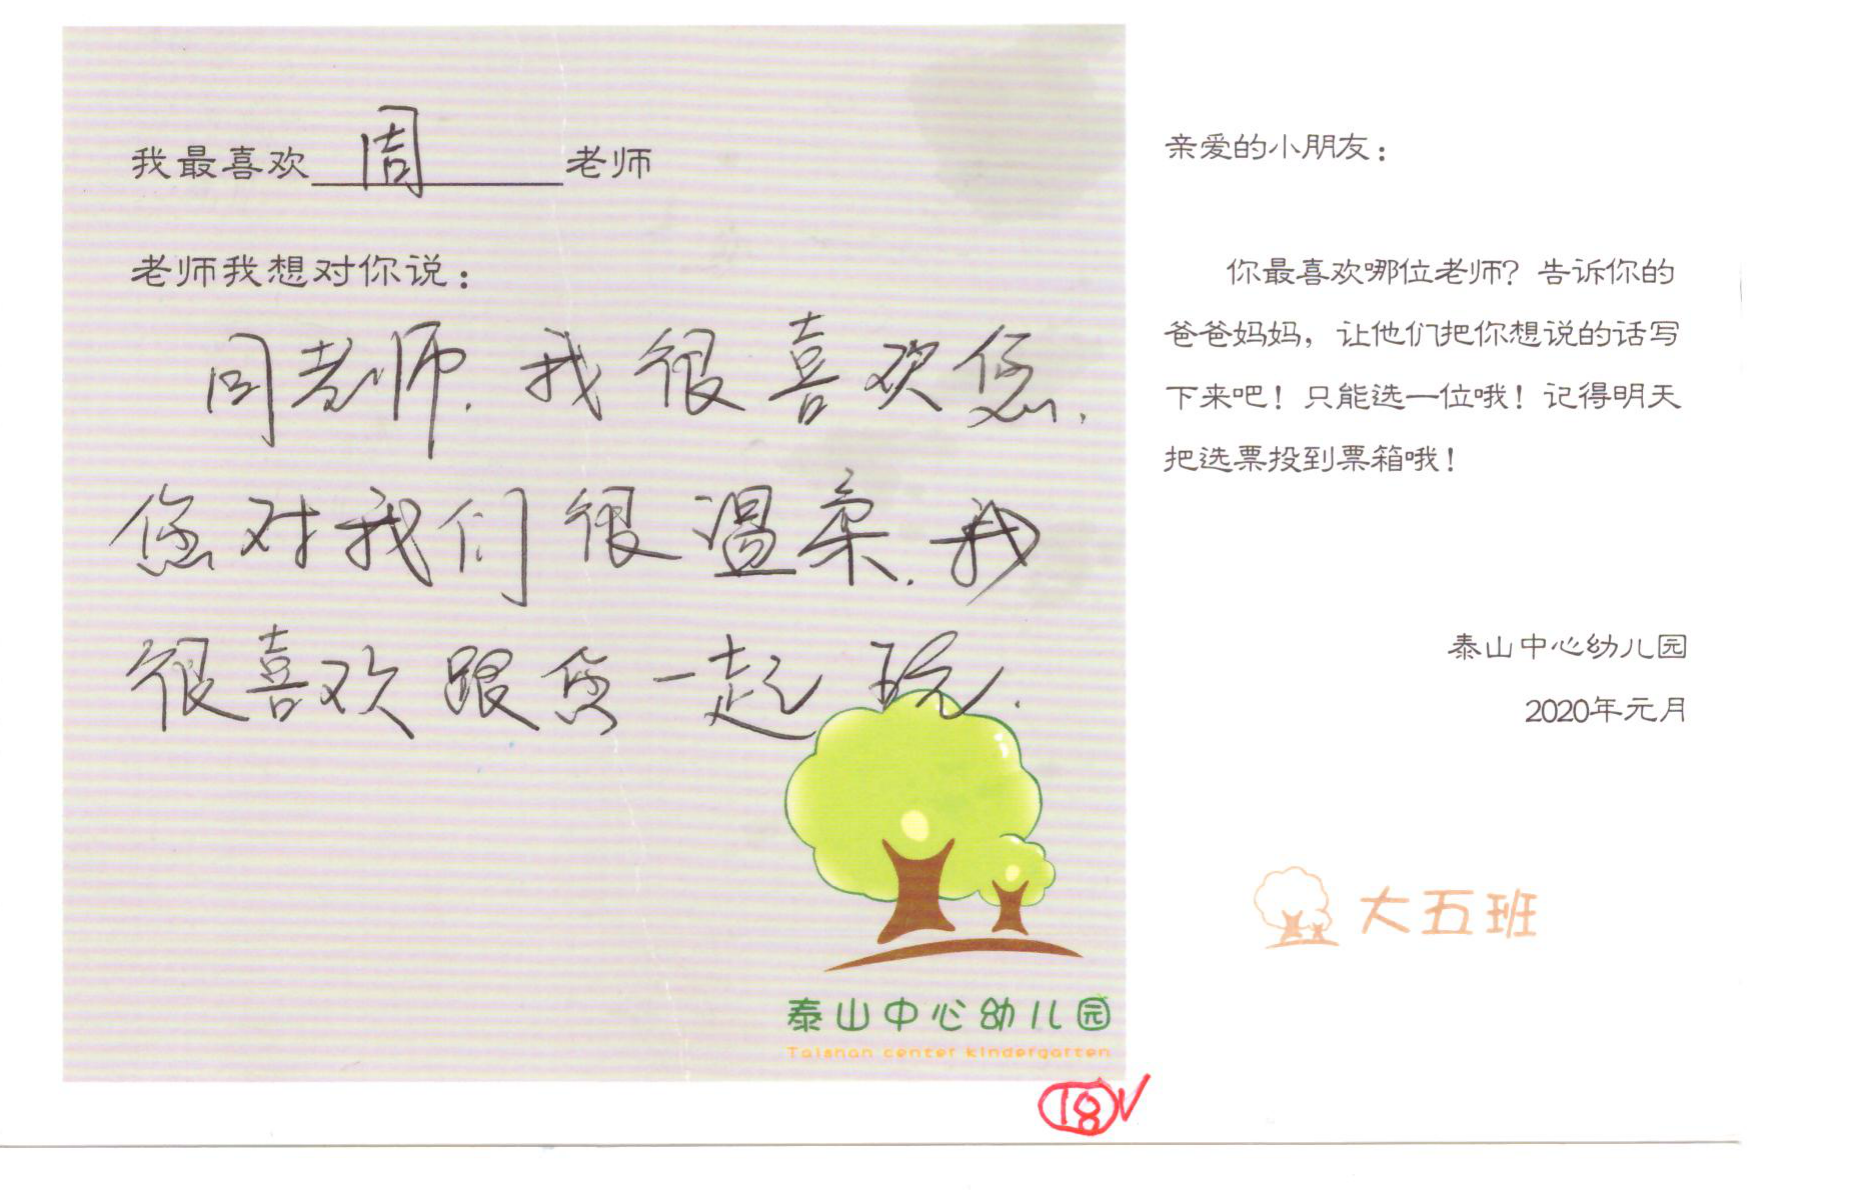 我最喜欢 周 老师
老师我想对你说：
周老师.我很喜欢您,
您对我们很温柔.我
很喜欢跟您一起玩.
泰山中心幼儿园
Taishan center kindergarten
18
亲爱的小朋友：
你最喜欢哪位老师？告诉你的
爸爸妈妈，让他们把你想说的话写
下来吧！只能选一位哦！记得明天
把选票投到票箱哦！
泰山中心幼儿园
2020年元月
大五班